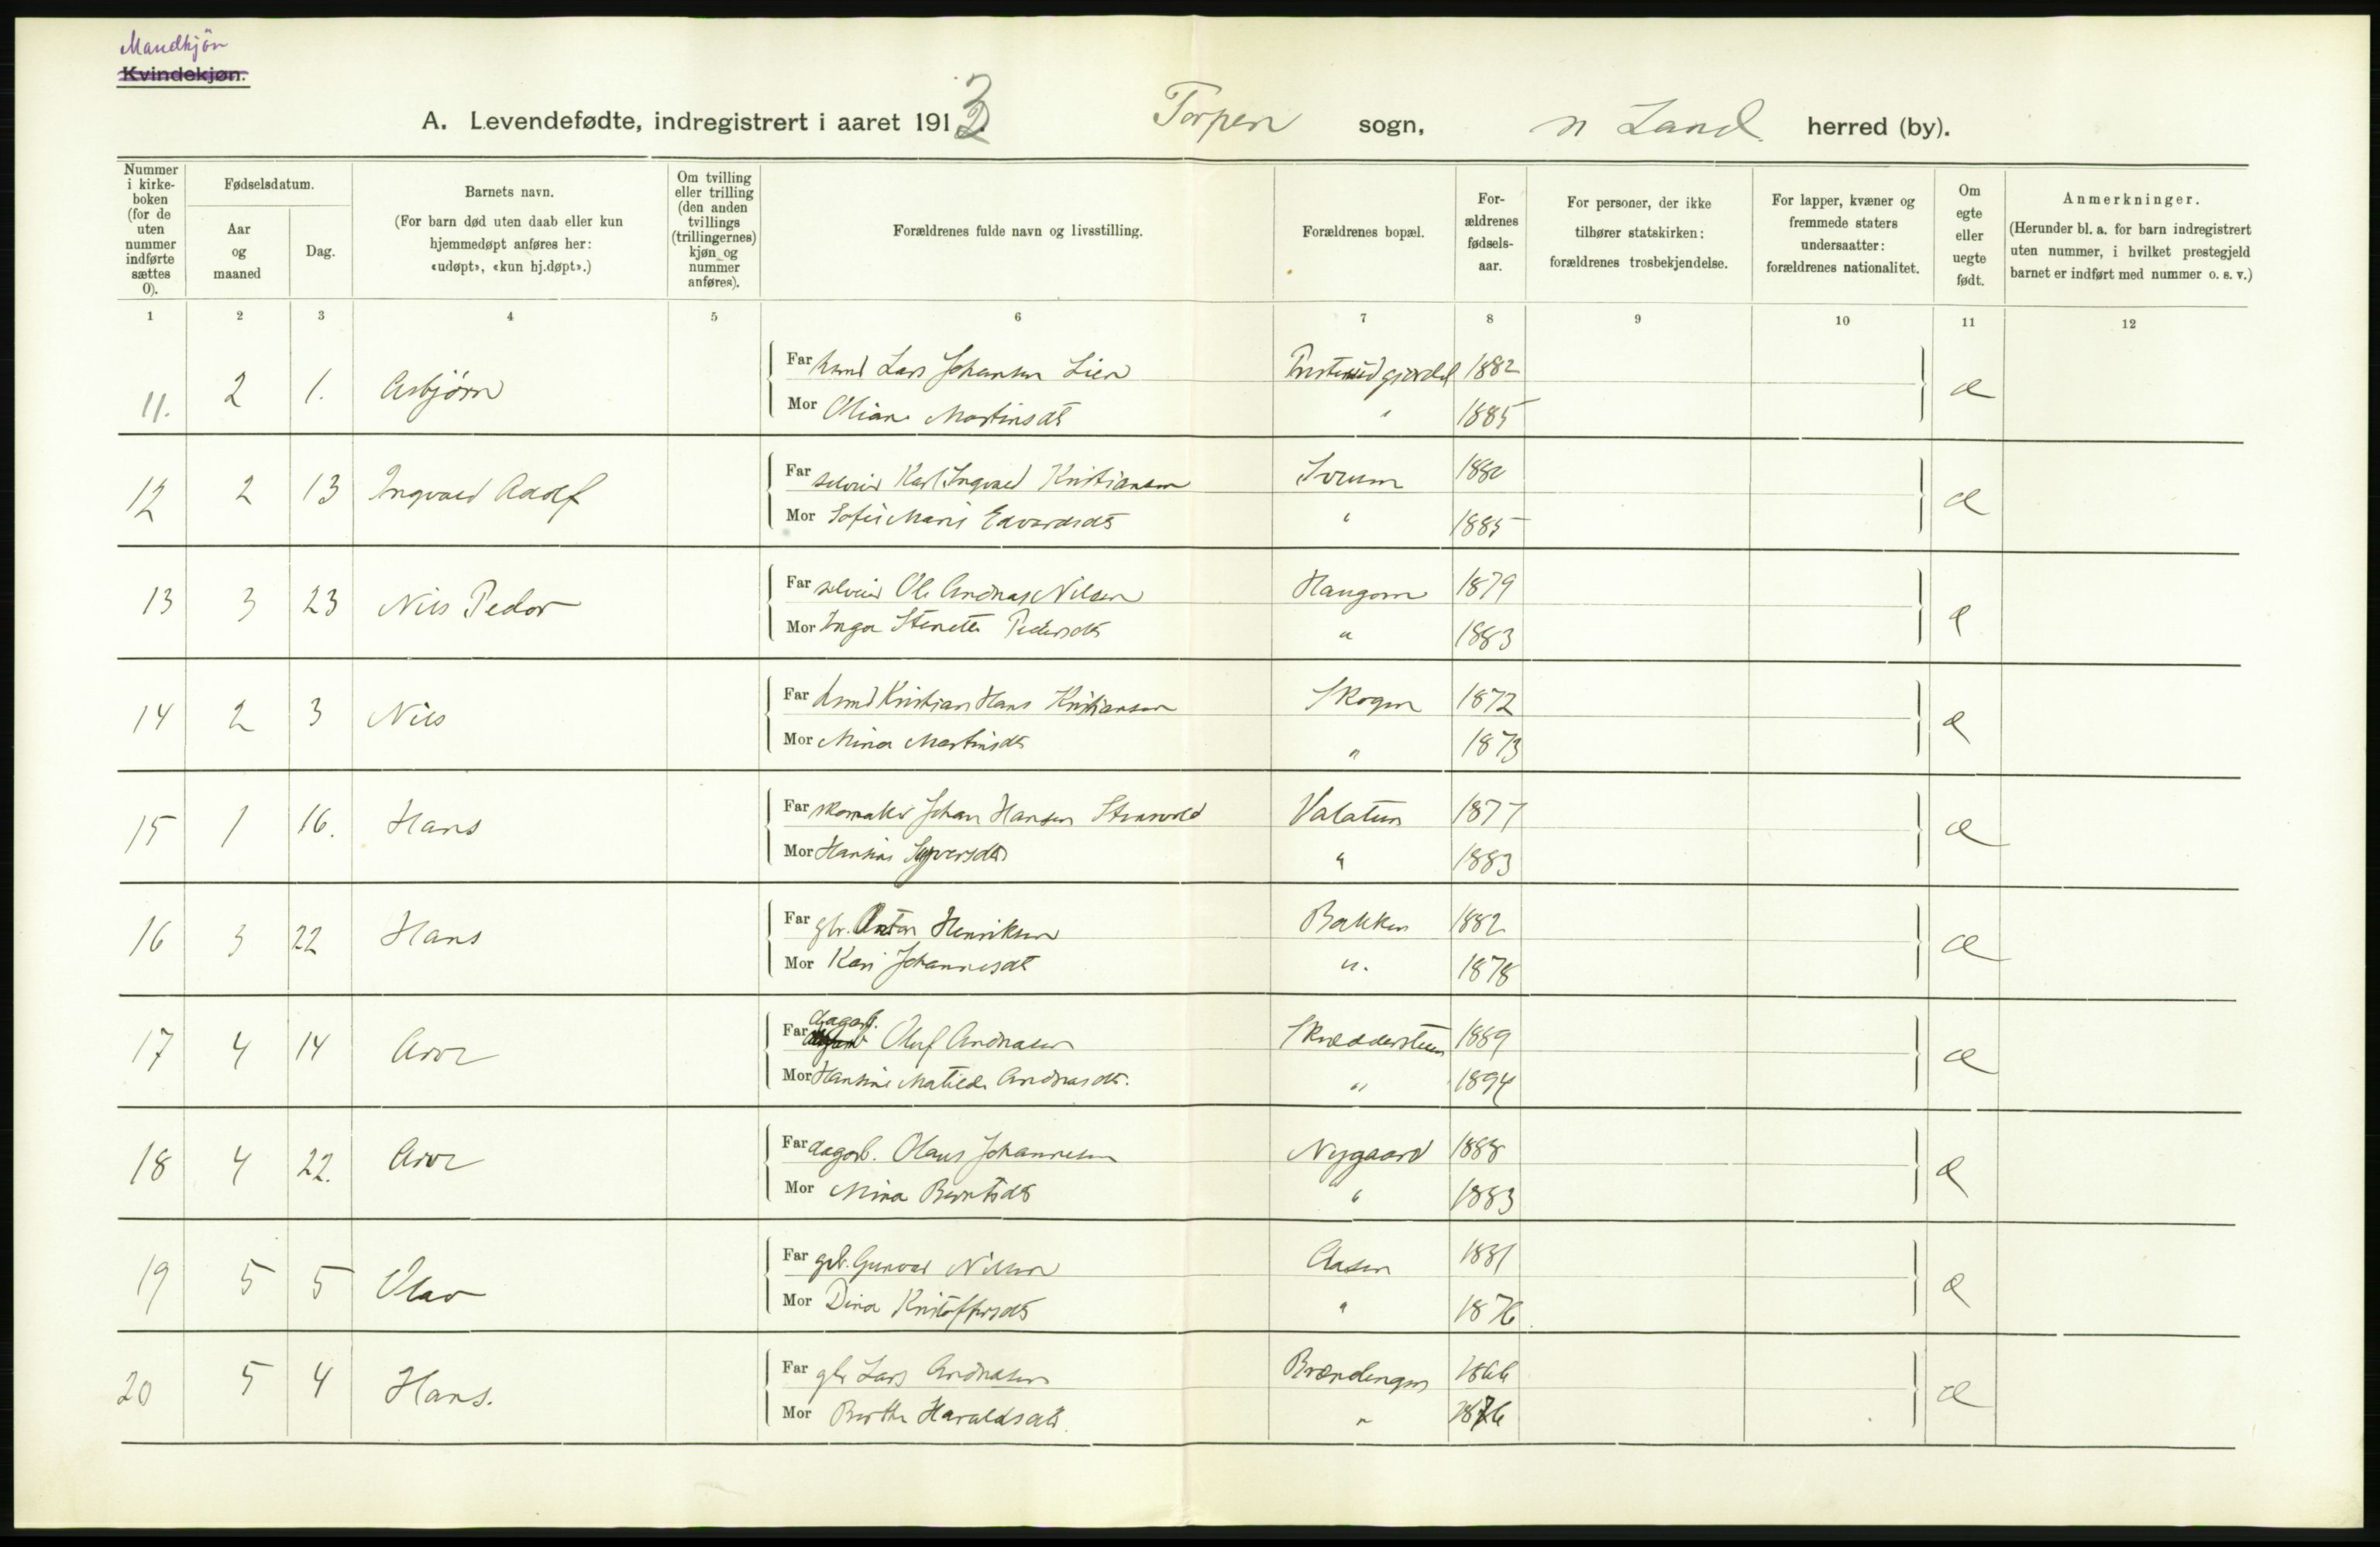 Mandkjön
Kvindekjøn.
A. Levendefødte, indregistrert i aaret 1913. Torpen sogn, n Land herred (by).
Nummer i kirke-boken (for de uten nummer indførte sættes 0).
Fødselsdatum.
Aar og maaned
Dag.
Barnets navn.
(For barn død uten daab eller kun hjemmedøpt anføres her: «udøpt», «kun hj.døpt».)
Om tvilling eller trilling (den anden tvillings (trillingernes) kjøn og nummer anføres).
Forældrenes fulde navn og livsstilling.
Forældrenes bopæl.
For-ældrenes fødsels-aar.
For personer, der ikke tilhører statskirken: forældrenes trosbekjendelse.
For lapper, kvæner og fremmede staters undersaatter: forældrenes nationalitet.
Om egte eller uegte født.
Anmerkninger.
(Herunder bl. a. for barn indregistrert uten nummer, i hvilket prestegjeld barnet er indført med nummer o. s. v.)
1 2 3 4 5 6 7 8 9 10 11 12
11. 2 1. Asbjørn Far Lars Johansen Lien 1882 æ
Mor Oliane Martinsdt " 1885
12 2 13 Ingvald Adolf Far selveier Karl Ingvald Kristiansen 1880 æ
Mor Sofie Marie Edvardsdt " 1885
13 3 23 Nils Peder Far selveier Ole Andreas Nilsen Haugom 1879 æ
Mor Inga Stenette Pedersdt " 1883
14 2 3 Nils Far Kristian Hans Kristiansen Skogen 1872 æ
Mor Mina Martinsdt " 1873
15 1 16. Hans Far skomaker Johan Hansen 1877 æ
Mor Hansine Syversdt " 1883
16 3 22 Hans Far gbr. Anton Henriksen Bakken 1882 æ
Mor Kari Johannesdt ". 1878
17 4 14 Arve Far dagarb. Oluf Andreasen Skræddersteen 1889 æ
Mor Hansine Matilde Andreasdt. " 1894
18 4 22. Arve Far dagarb. Olaus Johannesen Nygaard 1888 æ
Mor Mina Berntsdt " 1883
19 5 5 Olav Far gbr. Gunvald Nilsen Aasen 1881 æ
Mor Dina Kristoffersdt " 1876
20 5 4 Hans. Far gbr Lars Andreasen Brændengen 1866 æ
Mor Berthe Haraldsdt. " 1876